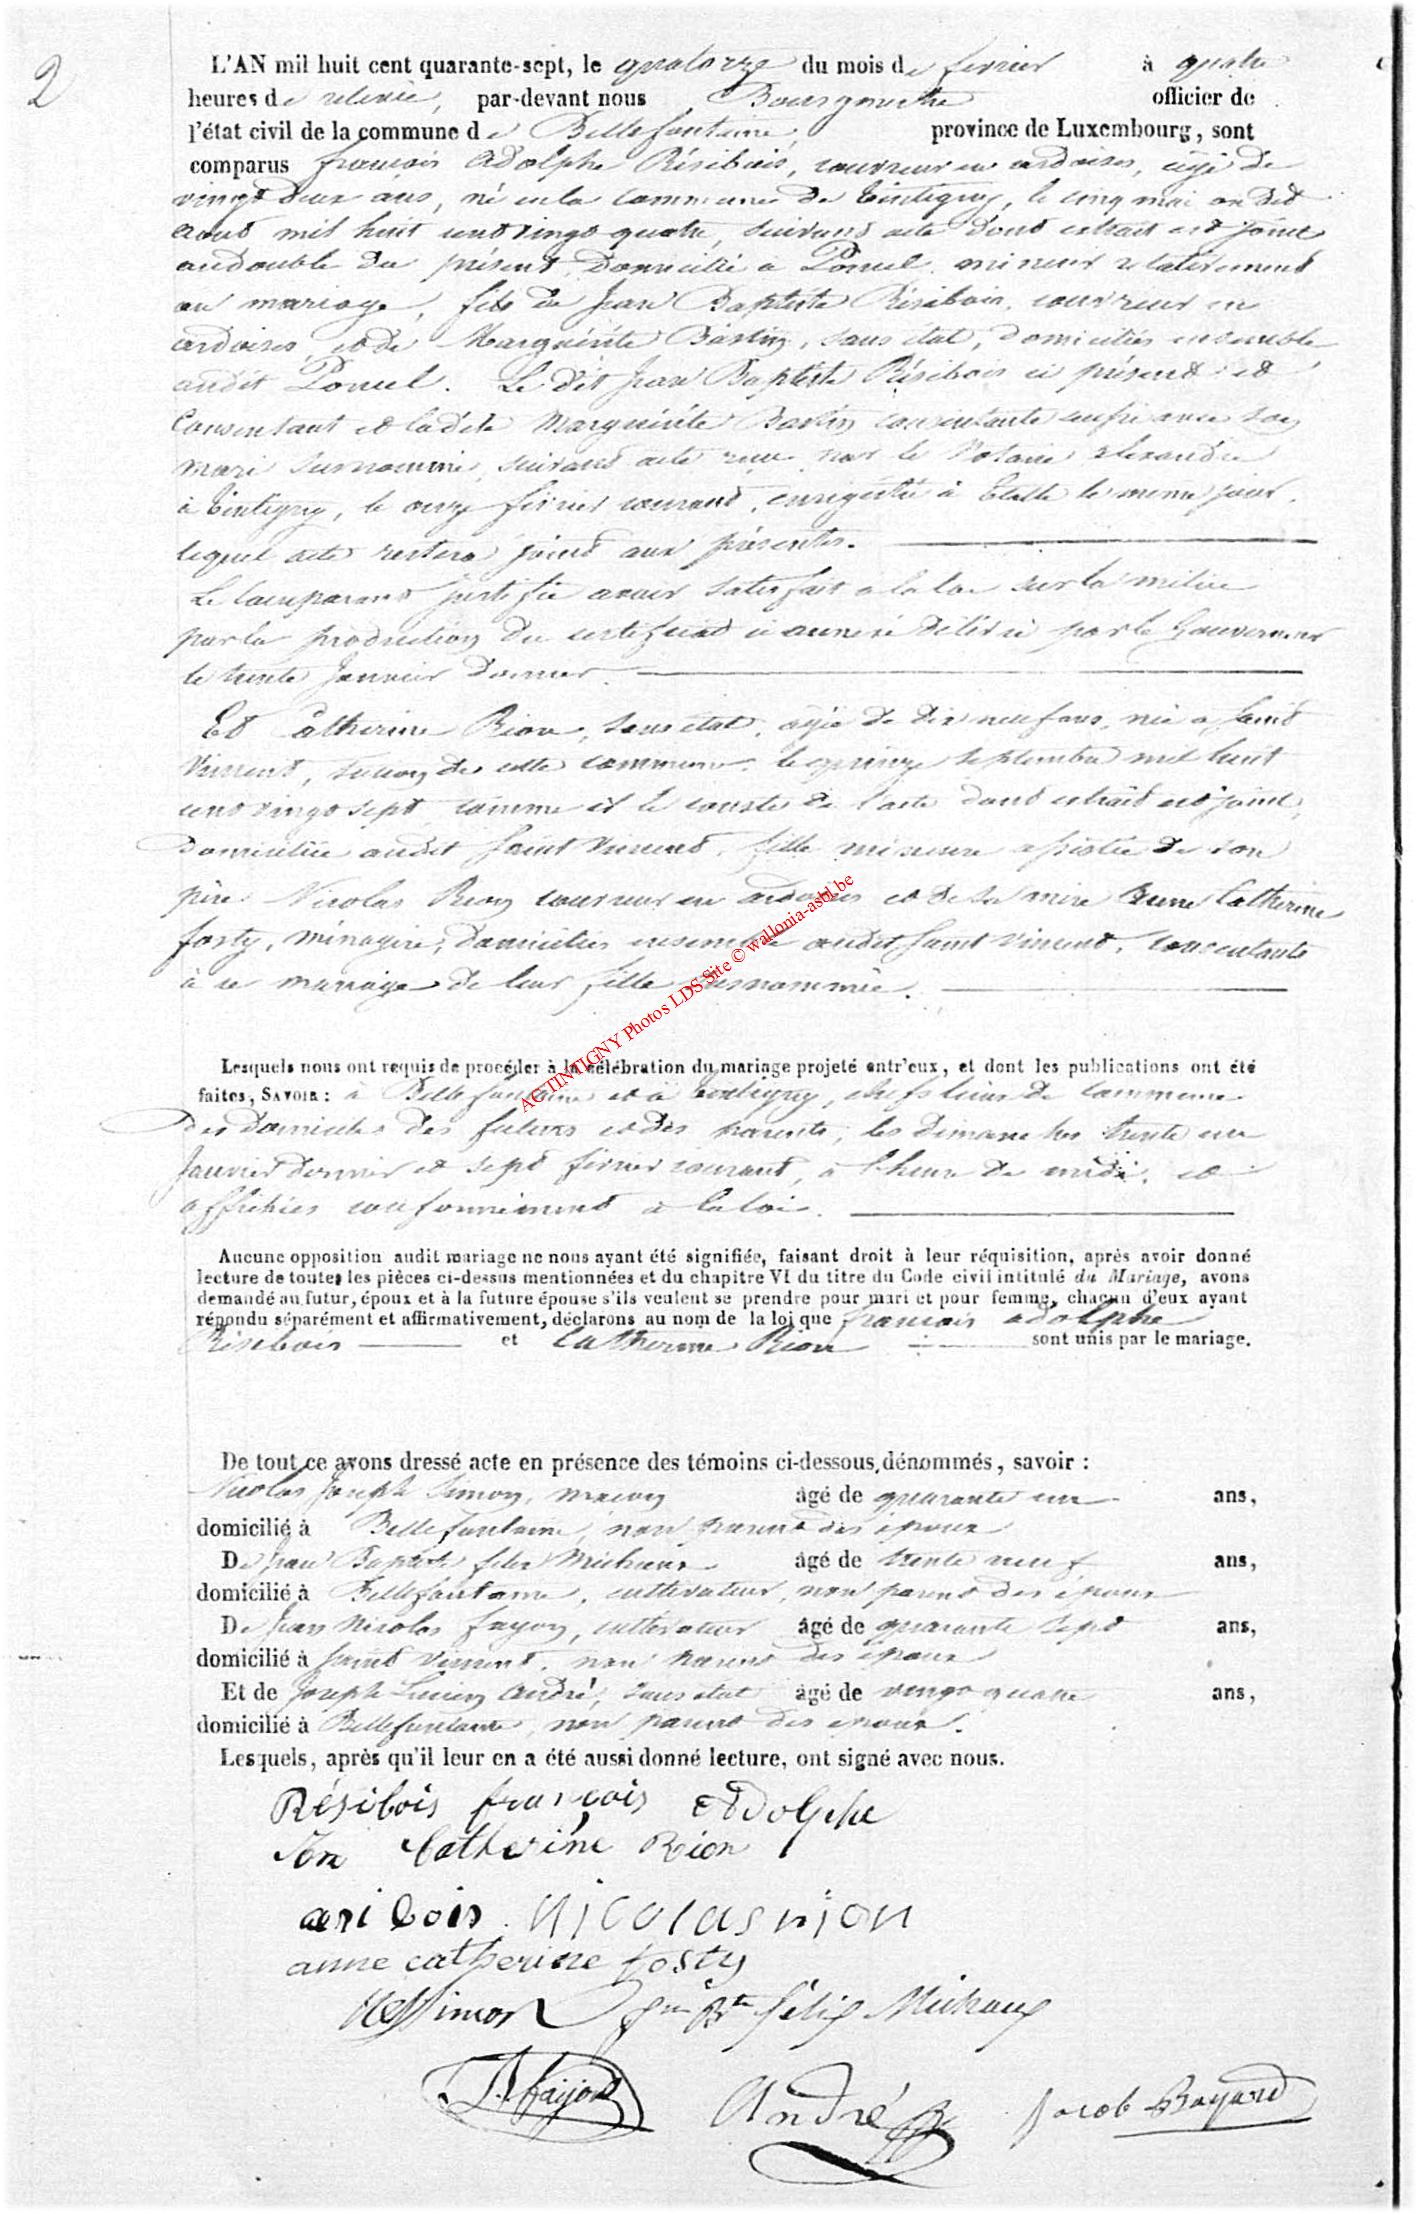 2
L'AN mil huit cent quarante-sept, le quatorze du mois de février à quatre
heures de relevée, par-devant nous Bourgmestre officier de
l'état civil de la commune de Bellefontaine, province de Luxembourg, sont
comparus françois Adolphe Résibois, couvreur en ardoises, âgé de
vingt deux ans, né en la commune de Tintigny, le cinq mai
mil huit cent vingt quatre, suivant acte dont extrait est joint
au double du présent, domicilié à Poncel, mineur relativement
au mariage, fils de Jean Baptiste Résibois, couvreur en
ardoises, et de Marguérite Bastin, sans état, domiciliés ensemble
audit Poncel. Le dit Jean Baptiste Résibois ci présent et
Consentant et ladite Marguérite Bastin consentante
mari surnommé, suivant acte reçu par le Notaire Alexandre
à Tintigny, le onze février courant, enrigistré à Etalle le meme jour,
lequel acte restera joint aux présentes.
Le Comparant justifie avoir satisfait à la loi sur la milice
par la production du certificat ci annexé délivré par le Gouverneur
le trente Janvier dernier.
Et Catherine Rion, sans état, âgée de dix neuf ans, née à Saint
Vincent, section de cette commune, le quinze septembre mil huit
cent vingt sept, comme il le conste de l'acte dont extrait est joint,
domiciliée audit Saint Vincent, fille mineure assistée de son
père Nicolas Rion couvreur en ardoises et de sa mère Anne Catherine
fosty, ménagère, domiciliés ensemble audit Saint Vincent, consentants
à ce mariage de leur fille surnommée.
ACTINTIGNY Photos LDS Site © wallonia-asbl.be
Lesquels nous ont requis de procéder à la célébration du mariage projeté entr'eux, et dont les publications ont été
faites, SAVOIR : à Bellefontaine et à Tintigny, chefs lieux de commune
des domiciles des futurs et des parents, les dimanches trente un
Janvier dernier et sept février courant, à l'heure de midi, et
affichées conformément à la loi.
Aucune opposition audit mariage ne nous ayant été signifiée, faisant droit à leur réquisition, après avoir donné
lecture de toutes les pièces ci-dessus mentionnées et du chapitre VI du titre du Code civil intitulé du Mariage, avons
demandé au futur, époux et à la future épouse s'ils veulent se prendre pour mari et pour femme, chacun d'eux ayant
répondu séparément et affirmativement, déclarons au nom de la loi que francois adolphe
Résibois et Catherine Rion sont unis par le mariage.
De tout ce avons dressé acte en présence des témoins ci-dessous dénommés, savoir :
Nicolas Joseph Simon, maçon âgé de quarante un ans,
domicilié à Bellefontaine, non parent des époux
De Jean Baptiste felix Michaux âgé de trente neuf ans,
domicilié à Bellefontaine, cultivateur, non parent des époux
De Jean Nicolas fayon, cultivateur âgé de quarante sept ans,
domicilié à Saint Vincent, non parent des époux
Et de Joseph Lucien André, sans état âgé de vingt quatre ans,
domicilié à Bellefontaine, non parent des époux.
Lesquels, après qu'il leur en a été aussi donné lecture, ont signé avec nous.
Résibois françois Adolphe
Catherine Rion
nicolas rion
anne catherine fosty
Simon Jean Bte félix Michaux
fayon
André Jacob Bayard